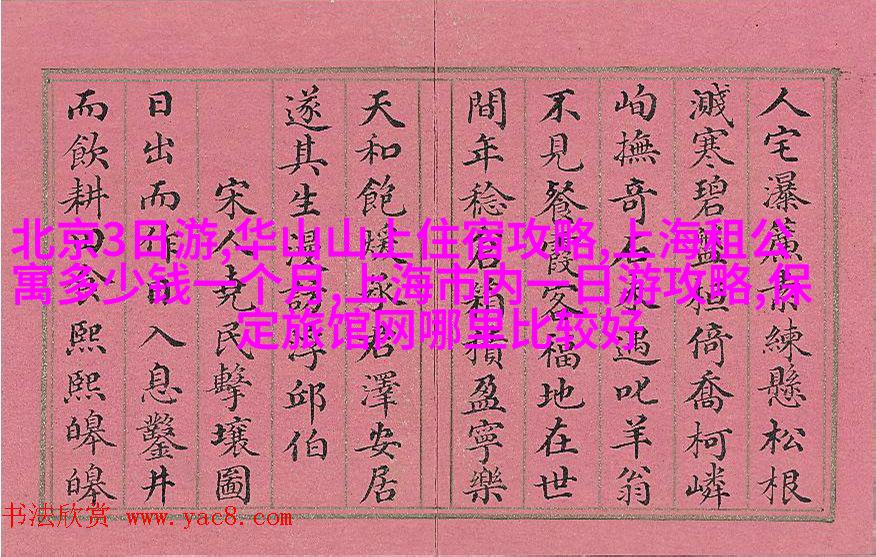 北京3日游,华山山上住宿攻略,上海租公
寓多少钱一个月,上海市内一日游攻略,保
定旅馆网哪里比较好
人宅瀑練懸松根
濺寒碧盤坦倚喬柯嶙
峋撫奇石遇叱羊翁
不見餐霞客福地在世
間年稔倉箱積盈寧樂
天和飽煖承君澤安居
遂其生漫訪浮邱伯
宋人堯民擊壤圖
日出而作日入息鑿井
而飲耕田食熙熙皞皞
书法欣赏 www.yac8.com